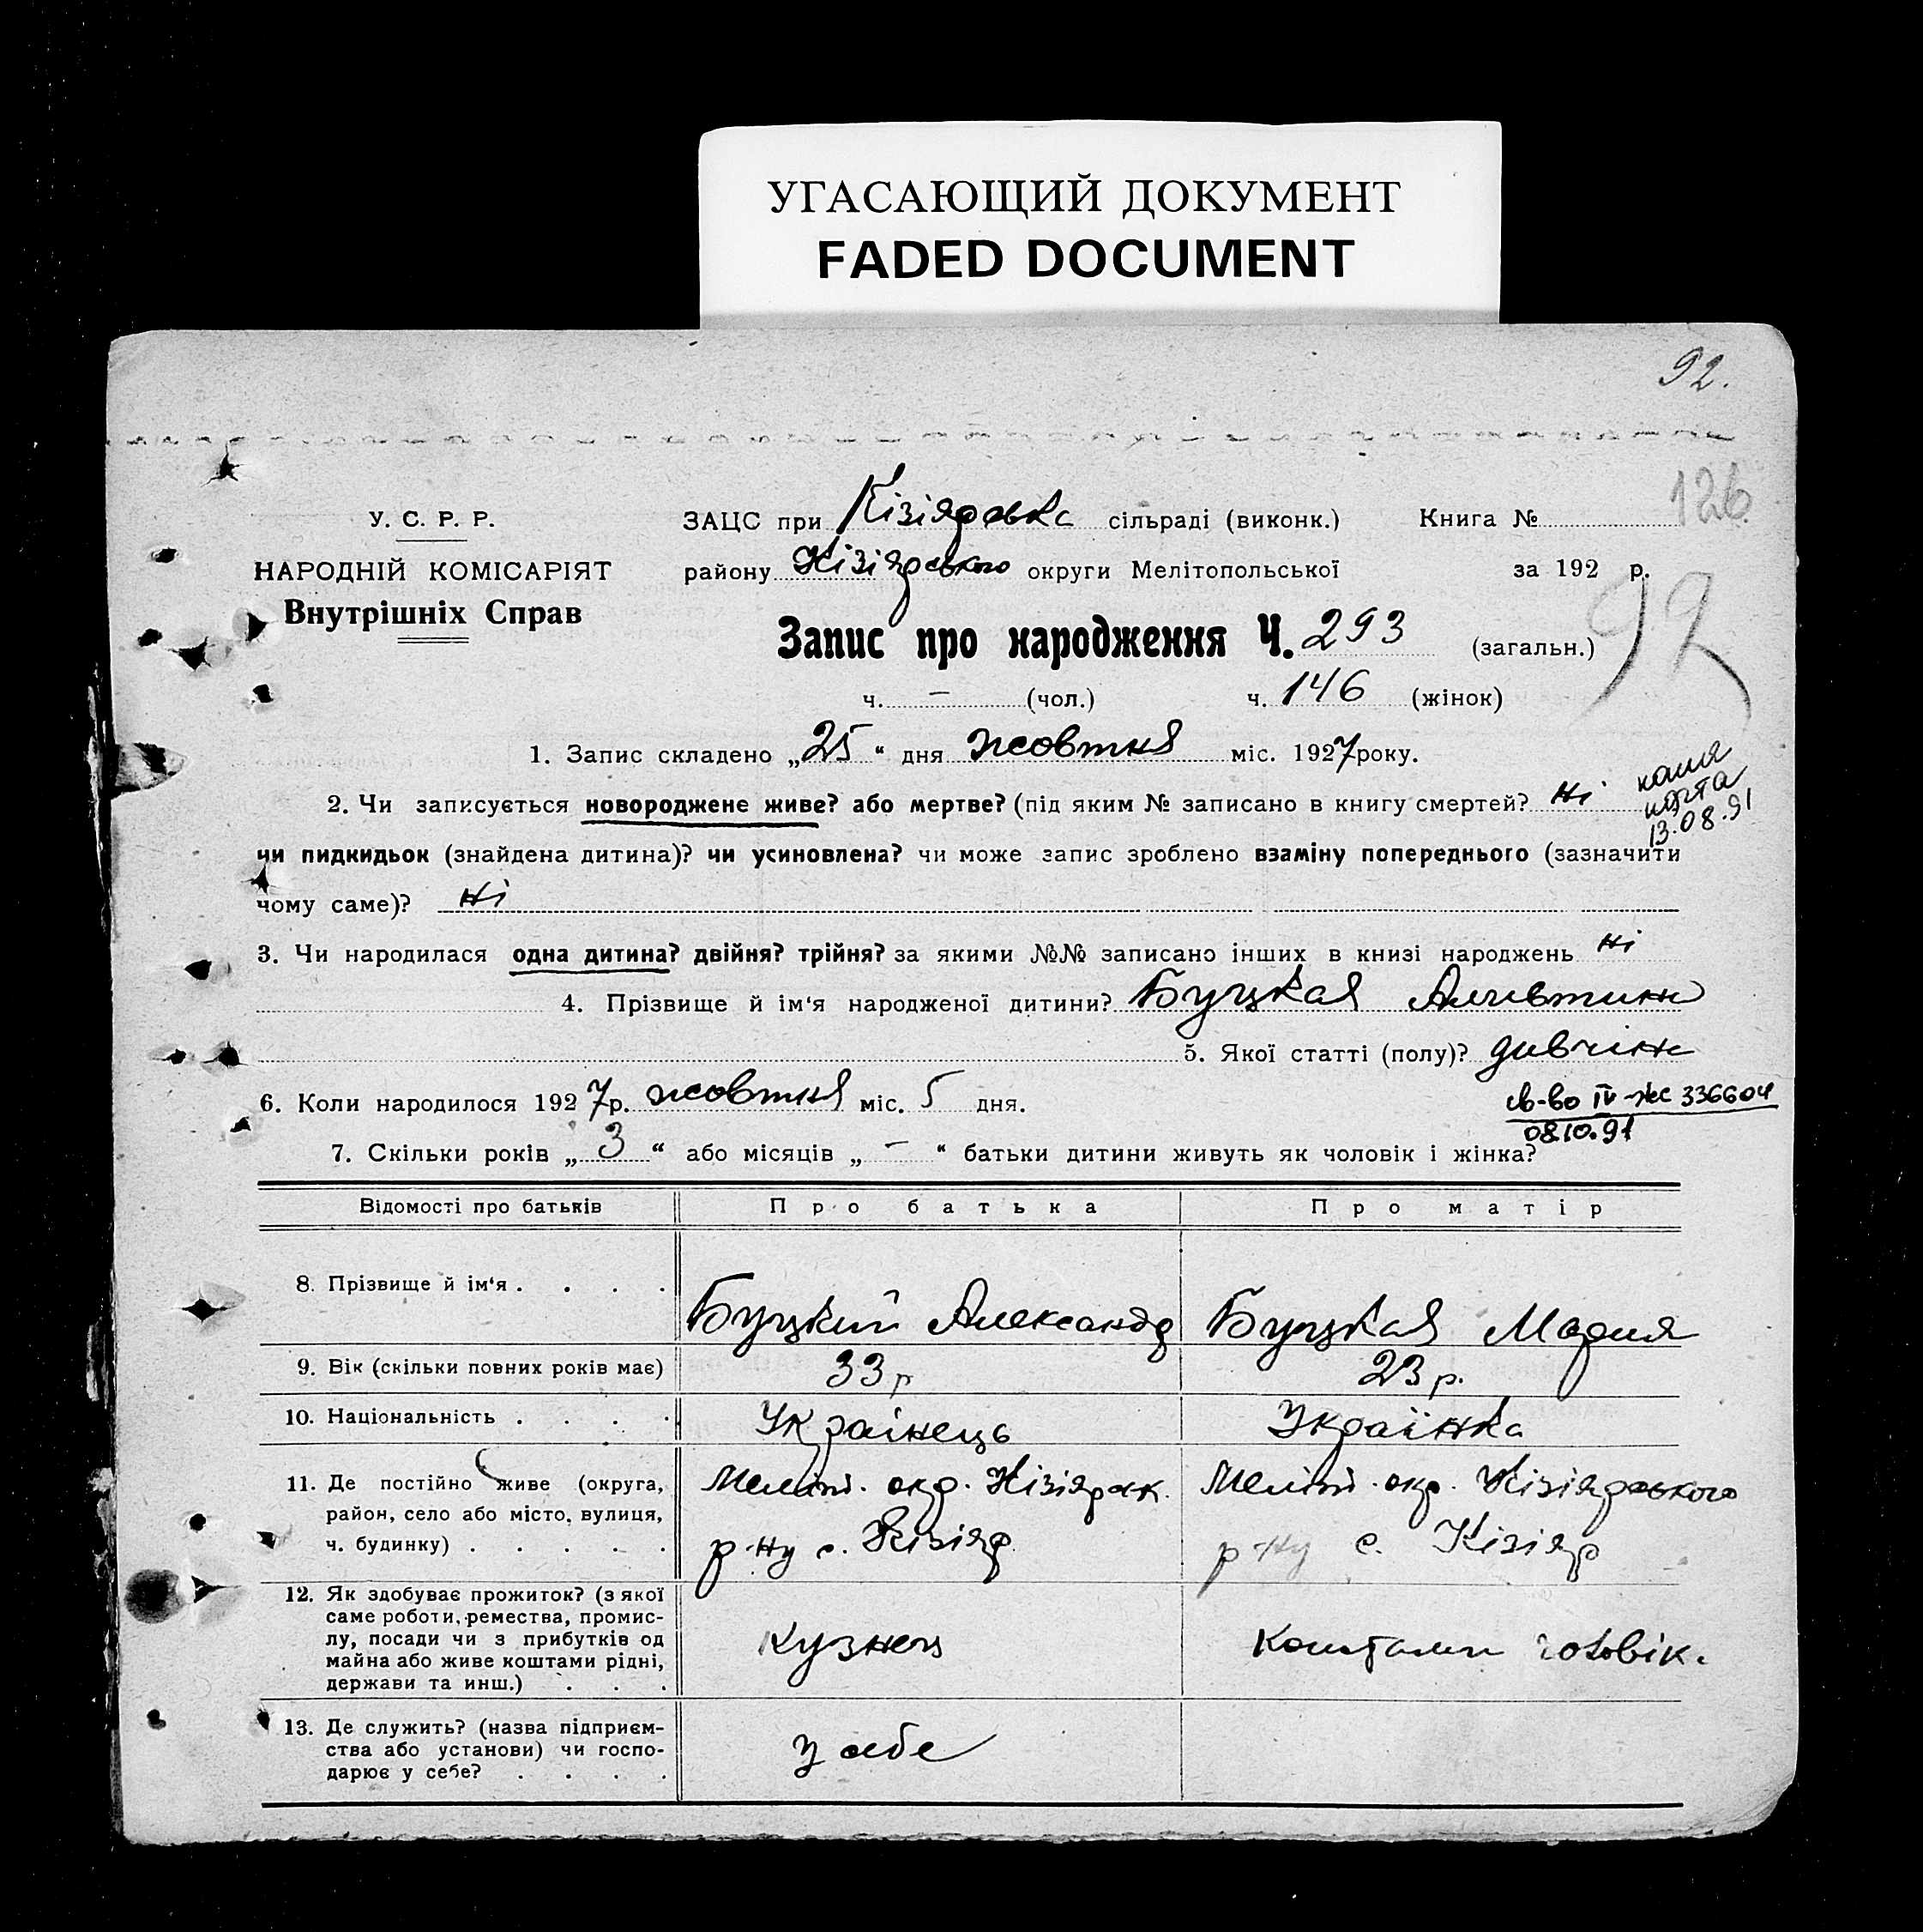 УГАСАЮЩИЙ ДОКУМЕНТ
FADED DOCUMENT
92.
126
У. С. Р. Р.
НАРОДНІЙ КОМІСАРІЯТ
Внутрішніх Справ
ЗАЦС при Кізіярська сільраді (виконк.) Книга №
району Кізіярського округи Мелітопольської за 192 р.
92
Запис про народження Ч. 293 (загальн.)
ч. — (чол.) ч. 146 (жінок)
1. Запис складено „25“ дня жовтня міс. 1927 року.
2. Чи записується новороджене живе? або мертве? (під яким № записано в книгу смертей? Ні
копия
13.08.91
чи пидкидьок (знайдена дитина)? чи усиновлена? чи може запис зроблено взаміну попереднього (зазначити
чому саме)? Ні
3. Чи народилася одна дитина? двійня? трійня? за якими №№ записано інших в книзі народжень Ні
4. Прізвище й ім‘я народженої дитини? Буцкая Алевтина
5. Якої статті (полу)? дивчина
6. Коли народилося 1927 р. жовтня міс. 5 дня.
св-во IV-жс 336604
08.10.91
7. Скільки років „3“ або місяців „—“ батьки дитини живуть як чоловік і жінка?
Відомості про батьків Про батька Про матір
8. Прізвище й ім‘я . . . . Буцкий Александр Буцкая Мария
9. Вік (скільки повних років має) 33 р 23 р.
10. Національність . . . . Українець Українка
11. Де постійно живе (округа,
район, село або місто, вулиця,
ч. будинку) . . . . .
Меліт. окр. Кізіярск.
р-ну с. Кізіяр
Меліт. окр. Кізіярського
р-ну с. Кізіяр
12. Як здобуває прожиток? (з якої
саме роботи, ремества, промис-
лу, посади чи з прибутків од
майна або живе коштами рідні,
держави та инш.) . . .
кузнец
Коштами чоловік.
13. Де служить? (назва підприєм-
ства або установи) чи госпо-
дарює у себе? . . . .
У себе